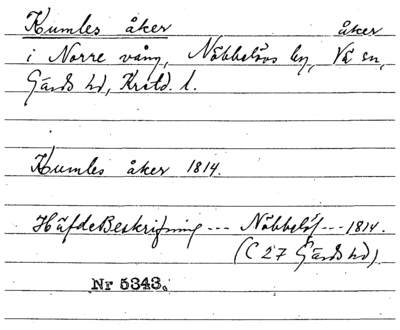 Kumles åker åker
i Norre vång, Nöbbelövs by, Vä sn,
Gärds hd, Kristd. l.
Kumles åker 1814.
HäfdeBeskrifning --- Nöbbelöf --- 1814.
(C 27 Gärds hd)
Nr 5343.